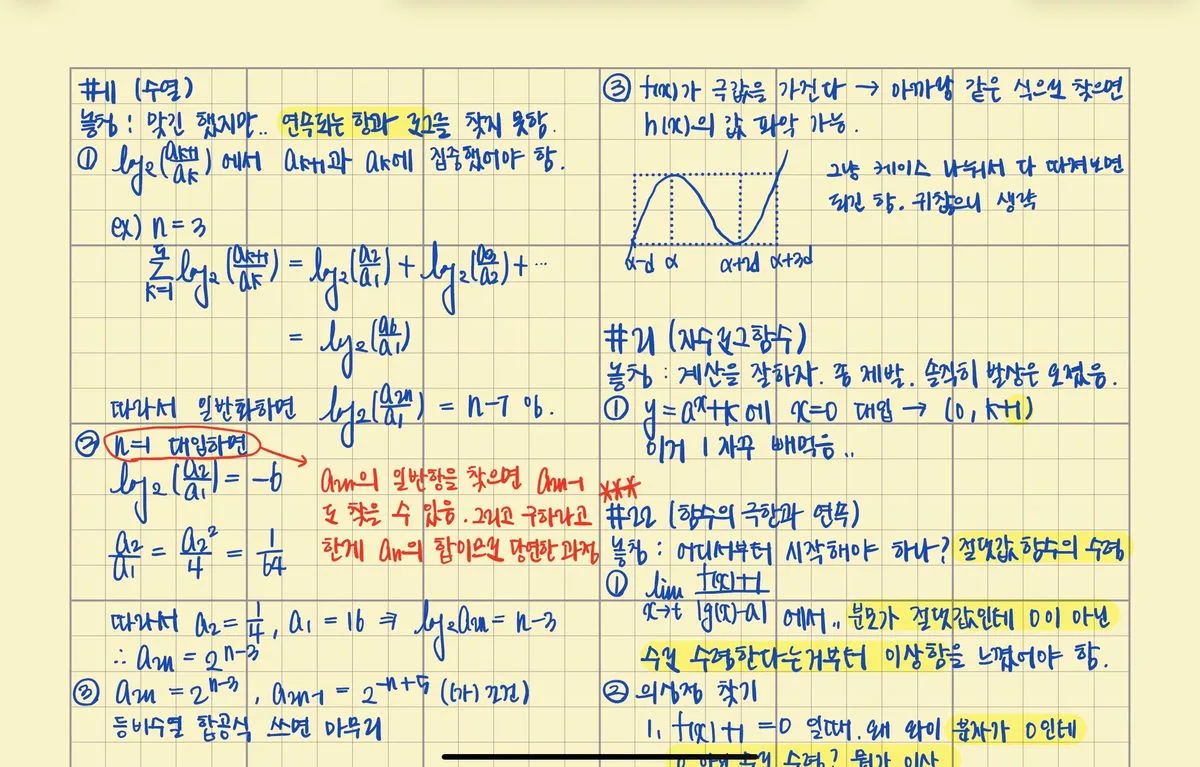 #11 (수열)
놓침 : 맞긴 했지만.. 연속되는 항과 로그를 찾지 못함.
① log₂(aₖ₊₁/aₖ) 에서 aₖ₊₁과 aₖ에 집중했어야 함.
ex) n = 3
Σ log₂(aₖ₊₁/aₖ) = log₂(a₂/a₁) + log₂(a₃/a₂) + ···
k=1
= log₂(a₆/a₁)
따라서 일반화하면 log₂(a₂ₙ/a₁) = n-7 %.
② n=1 대입하면
log₂(a₂/a₁) = -6
a₂/a₁ = a₂²/4 = 1/64
a₂ₙ의 일반항을 찾으면 a₂ₙ₋₁
도 찾을 수 있음. 그리고 구하라고
한게 aₙ의 합이므로 당연한 과정
따라서 a₂ = 1/4, a₁ = 16 ⇒ log₂a₂ₙ = n-3
∴ a₂ₙ = 2ⁿ⁻³
③ a₂ₙ = 2ⁿ⁻³, a₂ₙ₋₁ = 2⁻ⁿ⁺⁵ (가) 조건)
등비수열 합공식 쓰면 마무리
③ f(x)가 극값을 가진다 → 아까랑 같은 식으로 찾으면
h(x)의 값 파악 가능.
그냥 케이스 나눠서 다 따져보면
되긴 함. 귀찮으니 생략
α-d α α+2d α+3d
#21 (지수로그함수)
놓침 : 계산을 잘하자. 좀 제발. 솔직히 발상은 오졌음.
① y = aˣ+k 에 x=0 대입 → (0, k+1)
이거 1 자꾸 빼먹음..
***
#22 (함수의 극한과 연속)
놓침 : 어디서부터 시작해야 하나? 절댓값함수의 수렴
① lim x→t (f(x)+1)/|g(x)-a| 에서.. 분모가 절댓값인데 0이 아닌
수로 수렴한다는거부터 이상함을 느꼈어야 함.
② 의심점 찾기
1. f(x)+1 = 0 일때. 왜 와이 분자가 0인데
0 아닌 수로 수렴? 뭔가 이상